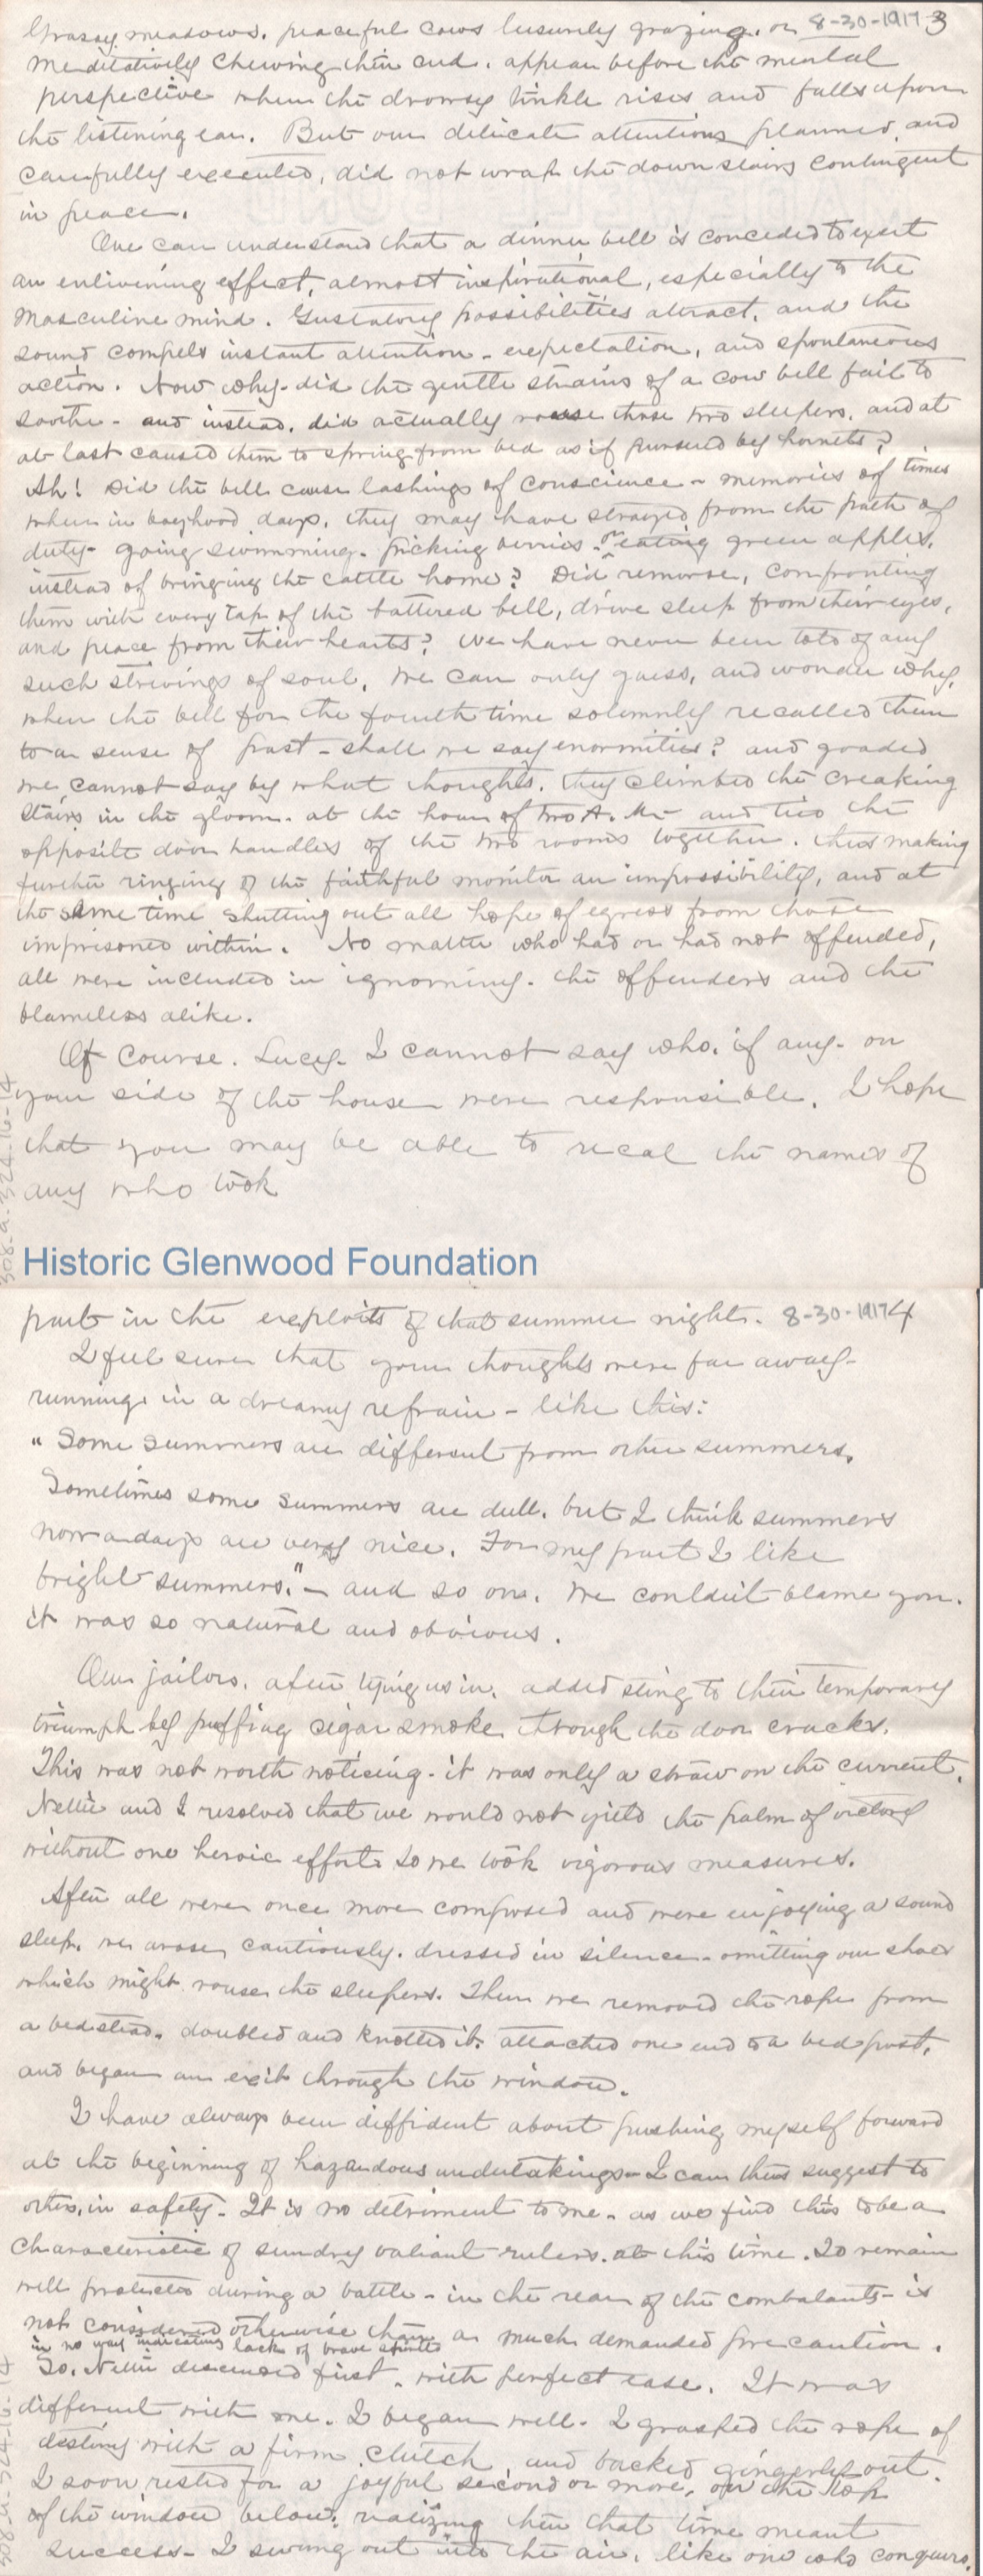 Grassy meadows, peaceful cows leisurely grazing, or 8-30-1917 3
meditatively chewing their cud, appear before the mental
perspective when the drowsy tinkle rises and falls upon
the listening ear. But our delicate attentions planned, and
carefully executed, did not wrap the down stairs contingent
in peace.
One can understand that a dinner bell is conceded to exert
an enlivening effect, almost inspirational, especially to the
masculine mind. Gustatory possibilities attract, and the
sound compels instant attention - expectation, and spontaneous
action. Now why did the gentle strains of a cow bell fail to
soothe - and instead, did actually rouse those two sleepers, and at
at last caused them to spring from bed as if pursued by hornets?
Ah! Did the bell cause lashings of conscience - memories of times
when in boyhood days, they may have strayed from the path of
duty - going swimming - picking berries - or eating green apples,
instead of bringing the cattle home? Did remorse, confronting
them with every tap of the battered bell, drive sleep from their eyes,
and peace from their hearts? We have never been told of any
such strivings of soul. We can only guess, and wonder why,
when the bell for the fourth time solemnly recalled them
to a sense of past - shall we say enormities? and goaded
we cannot say by what thoughts, they climbed the creaking
stairs in the gloom - at the hour of two A. M - and tied the
opposite door handles of the two rooms together, thus making
further ringing of the faithful monitor an impossibility, and at
the same time shutting out all hope of egress from those
imprisoned within. No matter who had or had not offended,
all were included in ignominy - the offenders and the
blameless alike.
Of course, Lucy - I cannot say who, if any - on
your side of the house were responsible. I hope
that you may be able to recal the names of
any who took
308-a-324-16-14
Historic Glenwood Foundation
part in the exploits of that summer night. 8-30-1917 4
I feel sure that your thoughts were far away -
running in a dreamy refrain - like this:
"Some summers are different from other summers.
Sometimes some summers are dull, but I think summers
now-a-days are very nice. For my part I like
bright summers." - and so on. We couldn't blame you.
it was so natural and obvious.
Our jailors, after tying us in, added sting to their temporary
triumph by puffing cigar smoke through the door cracks.
This was not worth noticing - it was only a straw on the current.
Nellie and I resolved that we would not yield the palm of victory
without one heroic effort so we took vigorous measures.
After all were once more composed and were enjoying a sound
sleep, we arose, cautiously, dressed in silence - omitting our shoes
which might rouse the sleepers. Then we removed the rope from
a bedstead, doubled and knotted it, attached one end to a bed post,
and began an exit through the window.
I have always been diffident about pushing myself forward
at the beginning of hazardous undertakings - I can thus suggest to
others, in safety - It is no detriment to me - as we find this to be a
characteristic of sundry valiant rulers, at this time. To remain
well protected during a battle - in the rear of the combatants - is
not considered otherwise than as much demanded precaution.
in no way indicating lack of brave spirits
So, Nellie descended first, with perfect ease. It was
different with me. I began well - I grasped the rope of
destiny with a firm clutch and backed gingerly out.
I soon rested for a joyful second or more, on the top
of the window below; realizing then that time meant
success - I swung out into the air, like one who conquers,
308-a-324-16-14